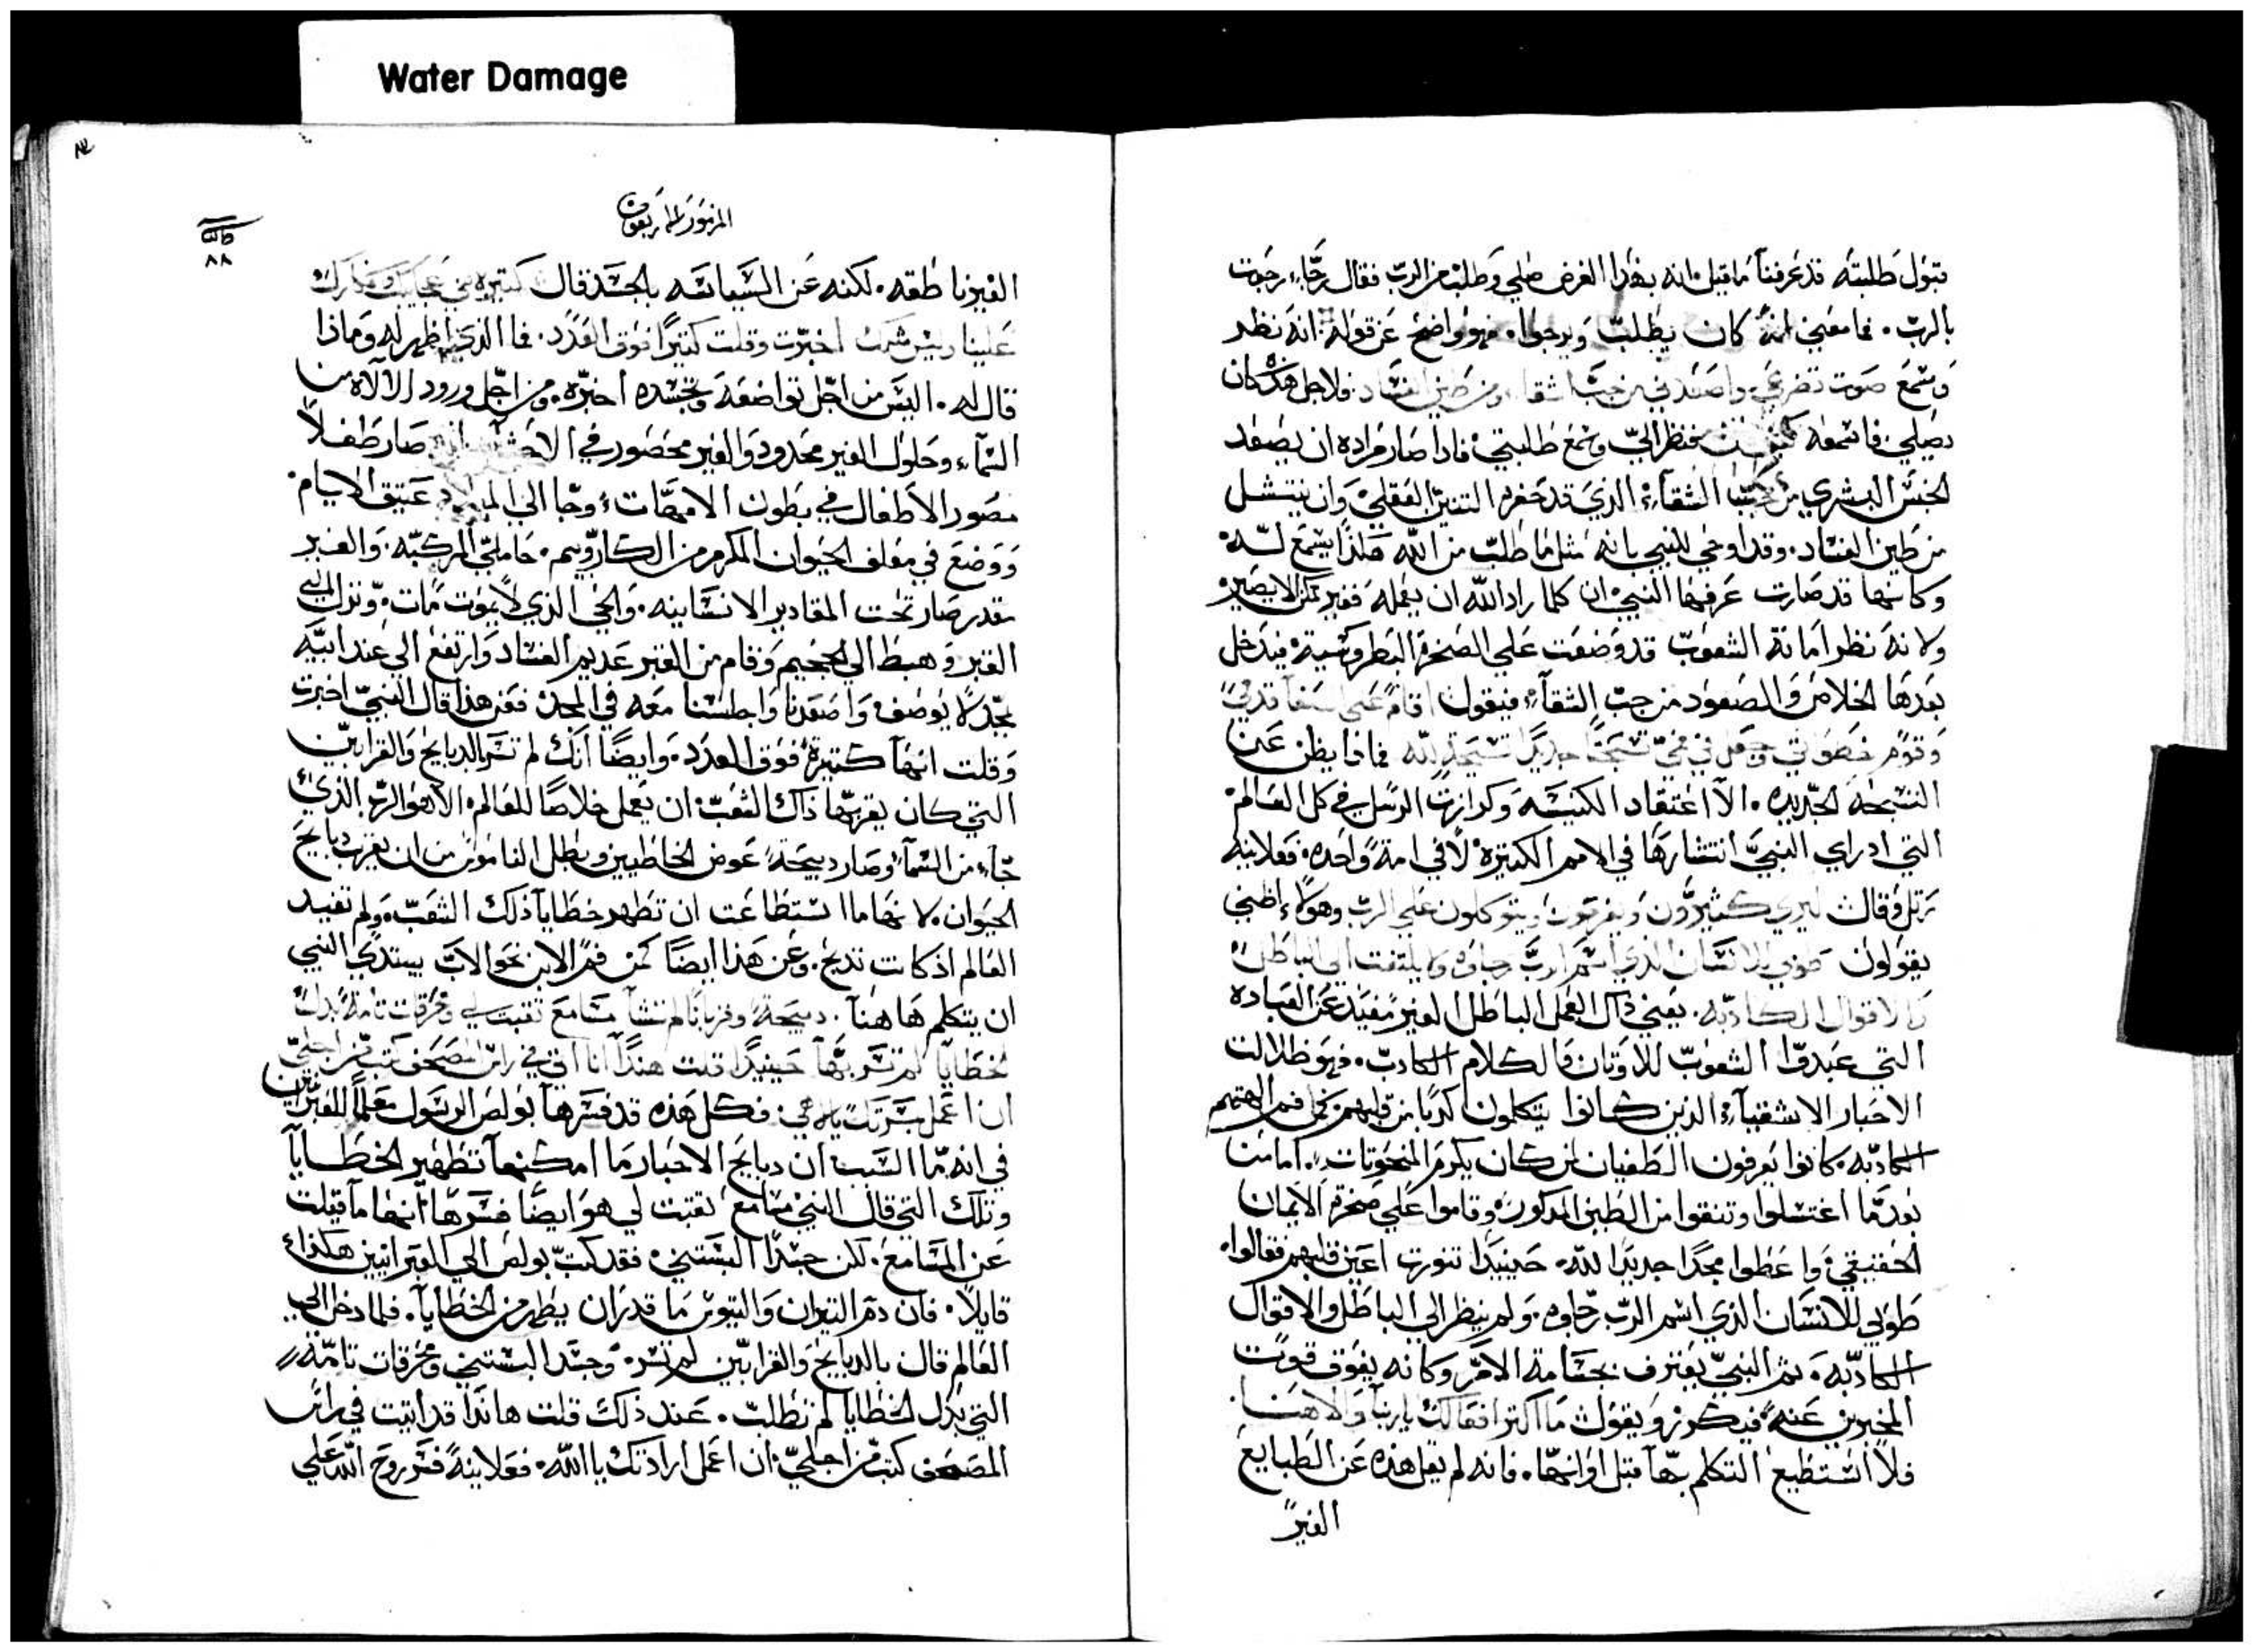 Water Damage
قبول طلبته قد عرفنا ماقيل انه بهذا الغرض صلي وطلب من الرب فقال رجاء رجوت
بالرب. فما معني انه كان يطلب ويرجوا. فهو واضح عن قوله. انه نظر
وسمع صوت تضرعي واصعدني من جب الشقا ومن طين الفساد. فلاجل هذه كان
يصلي. فاسمعه فنظر الي وسمع طلبتي. فاذا صار مراده ان يصعد
الجنس البشري من جب الشقآء الذي قد حفره التنين العقلي وان ينتشل
من طين الفساد. وقد اوحي للنبي بانه مثل ما طلب من الله هذا يسمع له.
وكانها قد صارت عرفها النبي ان كلما راد الله ان يعمله فغير ممكن الا يصير
ولانه نظر امانة الشعوب قد وضعت علي الصخرة البطروسية. فيدخل
بعدها الخلاص والصعود من جب الشقآء فيقول اقام علي سقفا قدمي
وقوم خطواتي وجعل في فمي تسبحة جديدة تسبحة لله فماذا يظن عن
التسبحة الجديده. الا اعتقاد الكنيسه وكرازت الرسل في كل العالم.
التي اد راي النبي انتشارها في الامم الكثيرة لا في امة واحده. فعلانية
رتل وقال ليري كثيرون ويفرحون ويتوكلون علي الرب وهولاء اظني
يقولون طوبي للانسان الذي اسم الرب رجاوه ولا يلتفت الي الباطل
والاقوال الكادبه. يعني ذاك العمل الباطل الغير مفيد عن العباده
التي عبدوا الشعوب للاوتان والكلام الكادب. فهو ظلالت
الاحبار الاشقيآء الذين كانوا يتكلمون كدبا من قلبهم كمن فم الهتهم
الكادبه. كانوا يعرفون الطغيان لمن كان يكرم المنحوتات. اما من
بعد ما اغتسلوا وتنقوا من الطين المدكور. وقاموا علي صخرة الايمان
الحقيقي. واعطوا مجدا جديدا لله. حينيدا تنورت اعين قلبهم فقالوا.
طوبي للانسان الذي اسم الرب رجاوه. ولم ينظر الي الباطل والاقوال
الكادبه. ثم النبي يعترف بجسامة الامر وكانه يفوق قوت
المخبرين عنه. فيكرز ويقول ما اكتر افعالك يا ربنا والاهنا.
فلا استطيع التكلم بها قبل اوانها. فانه لم يقل هذه عن الطبايع
الغير
المزمور الاربعون
٨٨
الغير ناطقه. لكنه عن السياسه بالجسد قال كتيره هي عجايبك وافكارك
علينا وليس شبهك اخبرت وقلت كتيرا فوق العدد. فما الذي اظهر له وماذا
قال له. اليس من اجل تواضعه وتجسده اخبره. ومن اجل ورود الالاه من
السمآء وحلول الغير محدود والغير محصور في صار طفلا
مصور الاطفال في بطون الامهات. وجا الي الميلاد عتيق الايام.
ووضع في معلف الحيوان المكرم من الكاروبيم. حاملي المركبه. والغير
مقدر صار تحت المقادير الانسانيه. والحي الذي لا يموت مات. ونزل الي
القبر وهبط الي الجحيم وقام من القبر عديم الفساد وارتفع الي عند ابيه
بمجد لا يوصف. واصعدنا واجلسنا معه في المجد. فعن هذا قال النبي اخبرت
وقلت انها كتيرة فوق العدد. وايضا انك لم تسر بالدبايح والقرابين
التي كان يقربها ذاك الشعب. ان يعمل خلاصا للعالم. الا هو الرب الذي
جآء من السمآء وصار دبيحة عوض الخاطيين وبطل الناموس من ان يقرب دبايح
الحيوان. لانها ما استطاعت ان تطهر خطايا ذلك الشعب. ولم تفيد
العالم اذ كانت تدبح. وعن هذا ايضا كمن فم الابن نحو الاب يبتدي النبي
ان يتكلم هاهنا. دبيحة وقربانا لم تشآ مسامع تقبت لي ومحرقات تامة بدل
الخطايا لم تسر بها حينيدا قلت هندا انا اتي في راس المصحف كتب من اجلي
ان اعمل مسرتك يالاهي. فكل هذه قد فسرها بولص الرسول معلما للعبرانيين
في انه ما السبب ان دبايح الاحبار ما امكنها تطهير الخطايا
وتلك التي قال النبي مسامع تقبت لي هو ايضا فسرها انها ما قيلت
عن المسامع. لكن جسدا البستني. فقد كتب بولص الي العبرانيين هكذا.
قايلا. فان دم التيران والتيوس ما قدر ان يطهر من الخطايا. فلما دخل الي
العالم قال بالدبايح والقرابين لم تسر. وجسدا البستني ومحرقات تامة
التي بدل الخطايا لم تطلب. عند ذلك قلت هاندا قد اتيت في راس
المصحف كتب من اجلي. ان اعمل ارادتك ياالله. فعلانية فسر روح الله علي